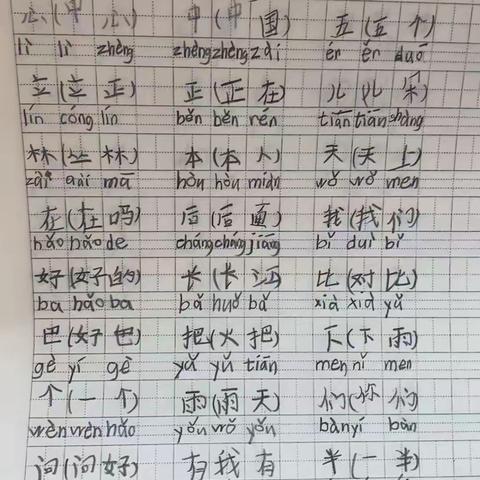 心(中心) 中(中国) 五(五个)
lì lì zhèng zhèng zhèng zài ér ér duǒ
立(立正) 正(正在) 儿(儿朵)
lín cóng lín běn běn rén tiān tiān shàng
林(丛林) 本(本人) 天(天上)
zài zài mā hòu hòu miàn wǒ wǒ men
在(在吗) 后(后面) 我(我们)
hǎo hǎo de cháng cháng jiāng bǐ duì bǐ
好(好的) 长(长江) 比(对比)
ba hǎo ba bǎ huǒ bǎ xià xià yǔ
巴(好巴) 把(火把) 下(下雨)
gè yí gè yǔ yǔ tiān men nǐ men
个(一个) 雨(雨天) 们(你们)
wèn wèn hǎo yǒu wǒ yǒu bàn yí bàn
问(问好) 有我有 半(一半)